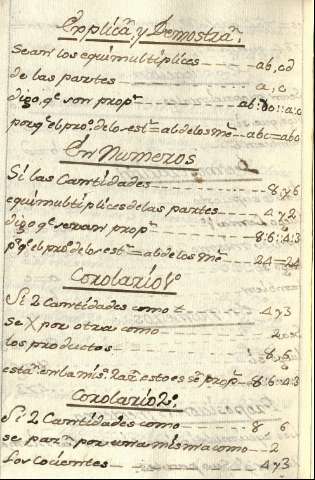 Explica.ⁿ y Demostra.ⁿ
Sean los equimultiplices ab, cd
de las partes a, c
digo, q.ᵉ son prop.ˢ ab: :: a:c
porq.ᵉ el pro.º de los est.ˢ = al de los me.ˢ abc = abc
En Numeros
Si las Cantidades 8. y 6
equimultiplices de las partes 4 y 3
digo q.ᵉ seran prop.ˢ 8:6::4:3
p.ˢ q.ᵉ el pro.º de los est.ˢ = al de los me.ˢ 24 = 24
Corolario 1.º
Si 2 Cantidades como 4 y 3
se X por otra como 2
los productos 8, 6
esta.ⁿ en la mis.ᵃ Raz.ⁿ esto es se.ⁿ prop.ˢ 8:6::4:3
Corolario 2.º
Si 2 Cantidades como 8 6
se par.ⁿ por una misma como 2
los Cocientes 4 y 3